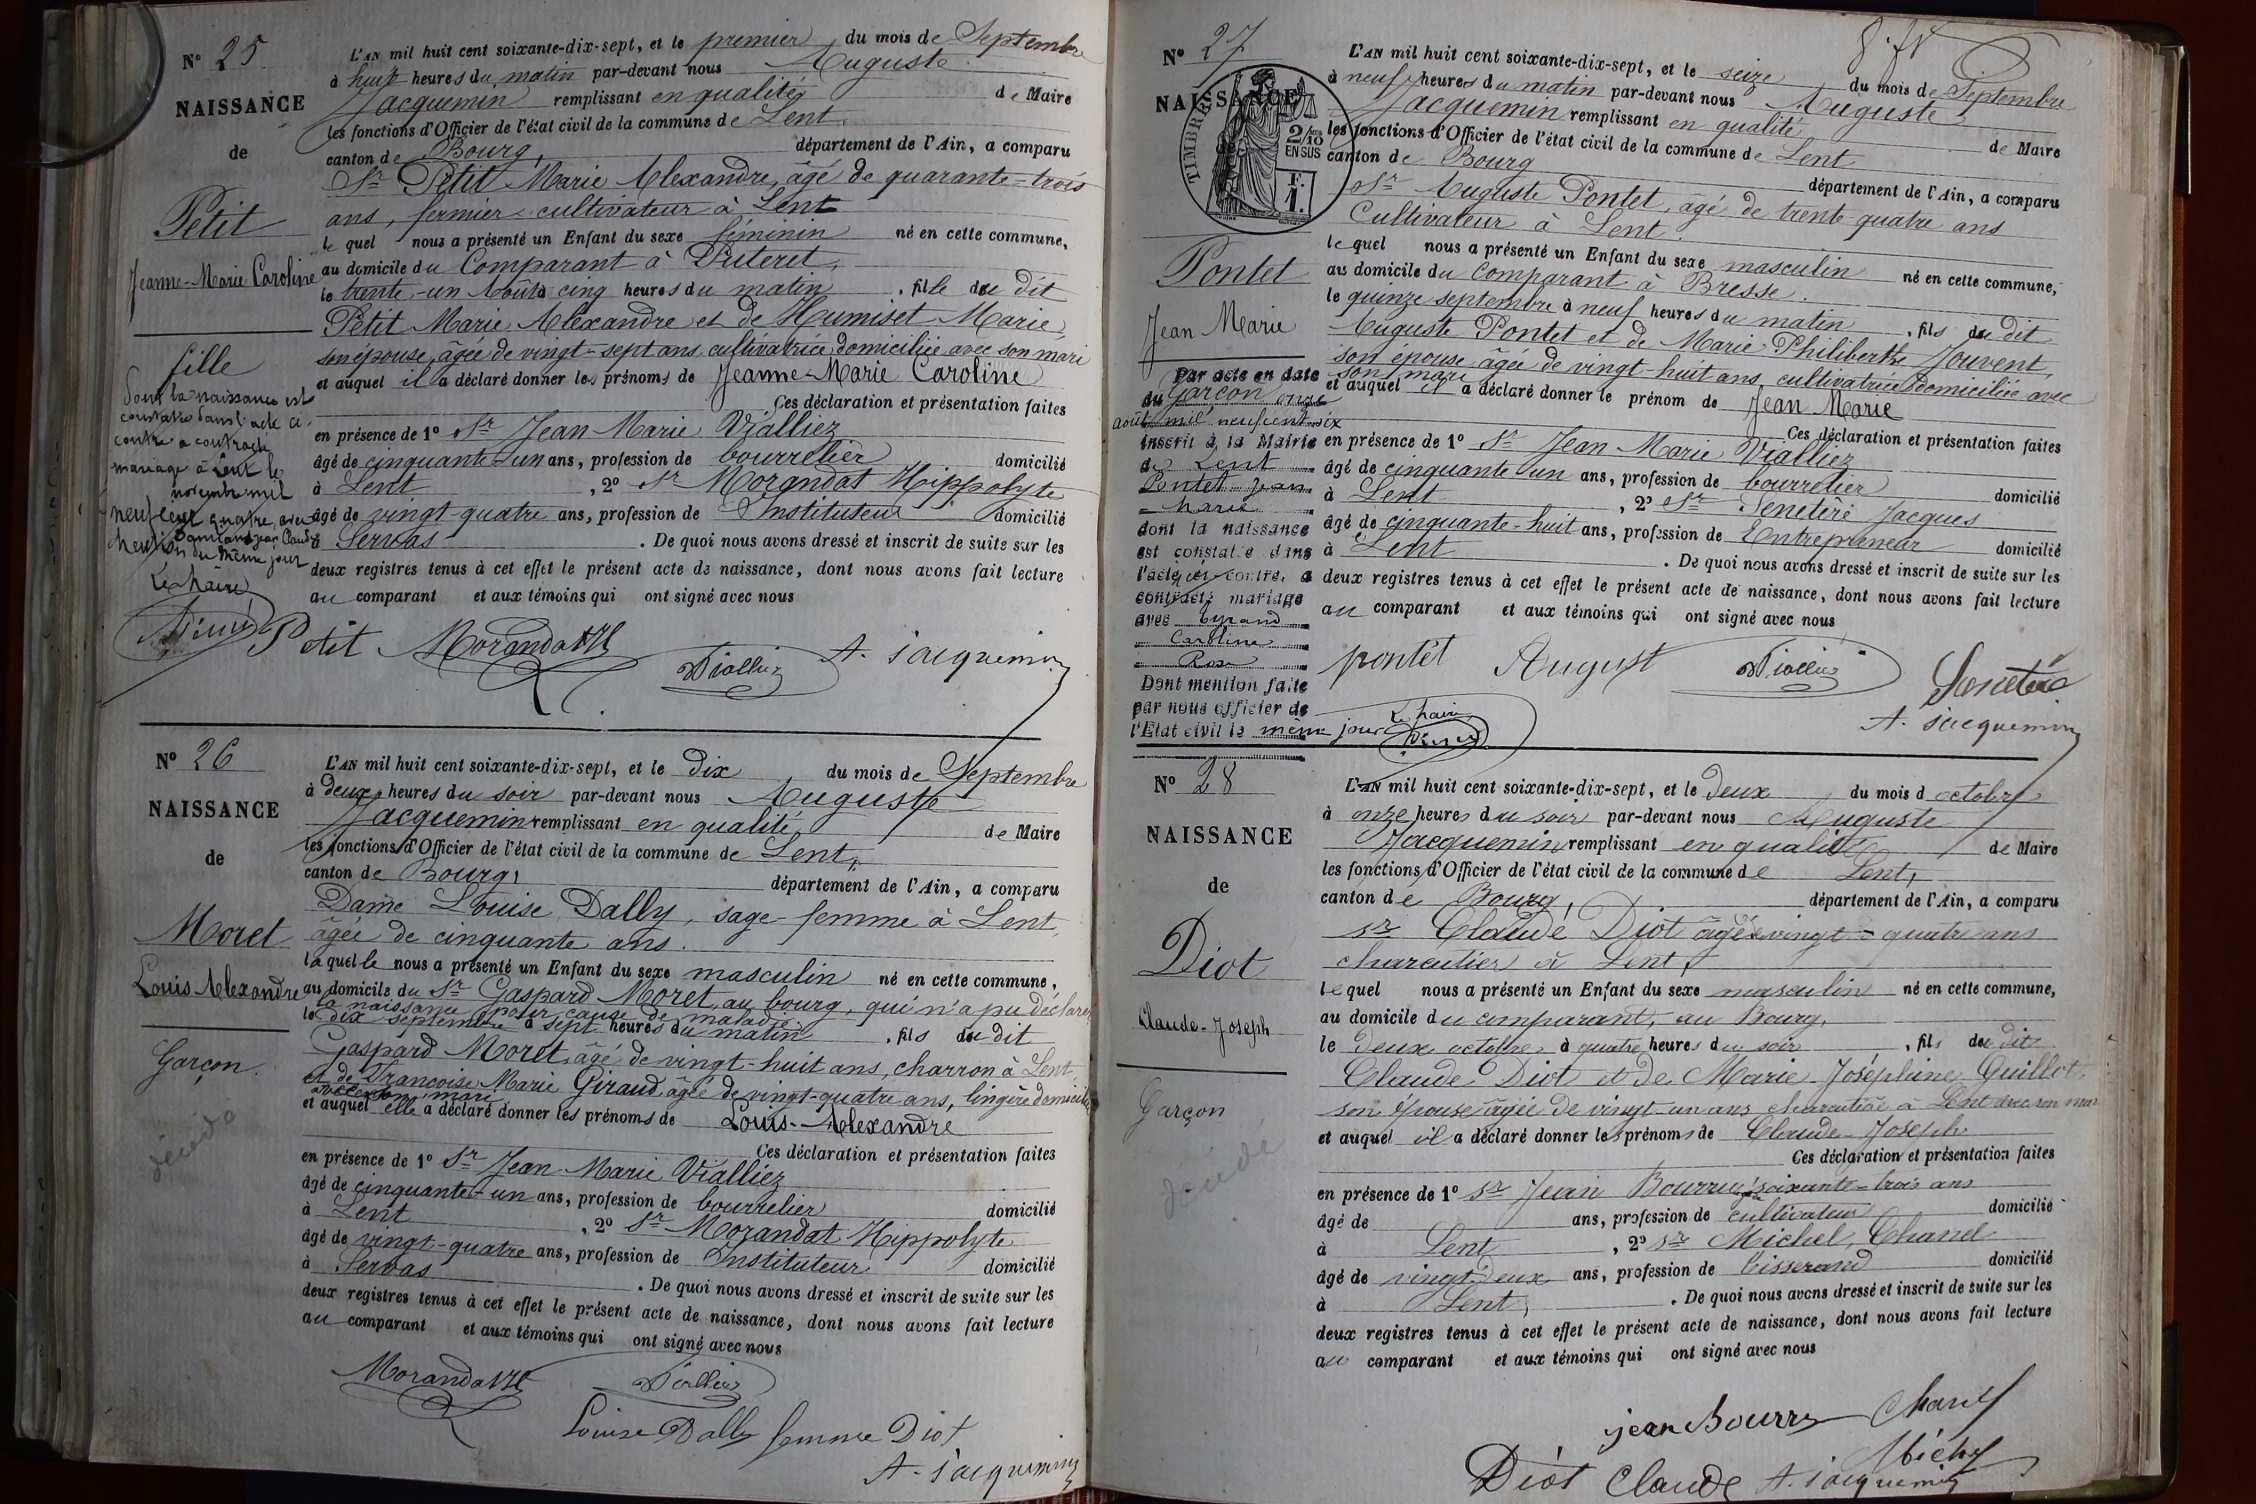 N° 25
NAISSANCE
de
Petit
Jeanne-Marie Caroline
fille
Dont la naissance est
constatée dans l'acte ci-
contre a contracté
mariage à Lent le
novembre mil
neuf cent quatre, avec
Jean Claude
mention du même jour
Le Maire
L'AN mil huit cent soixante-dix-sept, et le premier du mois de Septembre
à huit heures du matin par-devant nous Auguste
Jacquemin remplissant en qualité de Maire
les fonctions d'Officier de l'état civil de la commune de Lent
canton de Bourg, département de l'Ain, a comparu
Sr Petit Marie Alexandre, âgé de quarante-trois
ans, fermier cultivateur à Lent
le quel nous a présenté un Enfant du sexe féminin né en cette commune,
au domicile du Comparant à Puteret,
le trente-un Août à cinq heures du matin, fille du dit
Petit Marie Alexandre et de Humiset Marie,
son épouse, âgée de vingt-sept ans, cultivatrice domiciliée avec son mari
et auquel il a déclaré donner les prénoms de Jeanne-Marie Caroline
Ces déclaration et présentation faites
en présence de 1° Sr Jean Marie Vialliez
âgé de cinquante-un ans, profession de bourrelier domicilié
à Lent, 2° Sr Morandat Hippolyte
âgé de vingt-quatre ans, profession de Instituteur domicilié
à Servas. De quoi nous avons dressé et inscrit de suite sur les
deux registres tenus à cet effet le présent acte de naissance, dont nous avons fait lecture
au comparant et aux témoins qui ont signé avec nous
Petit Morandat H Vialliez A. Jacquemin
N° 26
NAISSANCE
de
Moret
Louis Alexandre
Garçon.
décédé
L'AN mil huit cent soixante-dix-sept, et le dix du mois de Septembre
à deux heures du soir par-devant nous Auguste
Jacquemin remplissant en qualité de Maire
les fonctions d'Officier de l'état civil de la commune de Lent,
canton de Bourg, département de l'Ain, a comparu
Dame Louise Dally, sage-femme à Lent,
âgée de cinquante ans.
laquelle nous a présenté un Enfant du sexe masculin né en cette commune,
au domicile du Sr Gaspard Moret, au bourg, qui n'a pu déclarer
la naissance pour cause de maladie
le dix septembre à sept heures du matin, fils du dit
Gaspard Moret, âgé de vingt-huit ans, charron à Lent
et de Françoise Marie Giraud, âgée de vingt-quatre ans, lingère domiciliée
avec son mari
et auquel elle a déclaré donner les prénoms de Louis-Alexandre
Ces déclaration et présentation faites
en présence de 1° Sr Jean Marie Vialliez
âgé de cinquante-un ans, profession de bourrelier domicilié
à Lent, 2° Sr Morandat Hippolyte
âgé de vingt-quatre ans, profession de Instituteur domicilié
à Servas. De quoi nous avons dressé et inscrit de suite sur les
deux registres tenus à cet effet le présent acte de naissance, dont nous avons fait lecture
au comparant et aux témoins qui ont signé avec nous
Morandat H Vialliez
Louise Dally femme Diot
A. Jacquemin
N° 27
NAISSANCE
TIMBRES
2/10
EN SUS
F.
1.
Pontet
Jean Marie
Garçon
Par acte en date
du onze
août mil neuf cent six
inscrit à la Mairie
de Lent
Pontet Jean
Marie
dont la naissance
est constatée dans
l'acte ci-contre, a
contracté mariage
avec Eyraud
Caroline
Rose
Dont mention faite
par nous officier de
l'Etat civil le même jour
Le Maire
L'AN mil huit cent soixante-dix-sept, et le seize du mois de Septembre
à neuf heures du matin par-devant nous Auguste
Jacquemin remplissant en qualité de Maire
les fonctions d'Officier de l'état civil de la commune de Lent
canton de Bourg département de l'Ain, a comparu
Sr Auguste Pontet, âgé de trente-quatre ans
Cultivateur à Lent.
le quel nous a présenté un Enfant du sexe masculin né en cette commune,
au domicile du comparant à Bresse.
le quinze septembre à neuf heures du matin, fils du dit
Auguste Pontet et de Marie Philiberthe Jouvent,
son épouse âgée de vingt-huit ans, cultivatrice domiciliée avec
son mari
et auquel il a déclaré donner le prénom de Jean Marie
Ces déclaration et présentation faites
en présence de 1° Sr Jean Marie Vialliez
âgé de cinquante un ans, profession de bourrelier domicilié
à Lent, 2° Sr Senetère Jacques
âgé de cinquante-huit ans, profession de Entrepreneur domicilié
à Lent. De quoi nous avons dressé et inscrit de suite sur les
deux registres tenus à cet effet le présent acte de naissance, dont nous avons fait lecture
au comparant et aux témoins qui ont signé avec nous
pontet August Vialliez Senetère
A. Jacquemin
N° 28
NAISSANCE
de
Diot
Claude-Joseph
Garçon
décédé
L'AN mil huit cent soixante-dix-sept, et le Deux du mois d octobre
à onze heures du soir par-devant nous Auguste
Jacquemin remplissant en qualité de Maire
les fonctions d'Officier de l'état civil de la commune de Lent,
canton de Bourg, département de l'Ain, a comparu
Sr Claude Diot âgé vingt-quatre ans
charcutier à Lent,
le quel nous a présenté un Enfant du sexe masculin né en cette commune,
au domicile du comparant, au Bourg,
le Deux octobre à quatre heures du soir, fils du dit
Claude Diot et de Marie-Joséphine Guillot,
son épouse âgée de vingt-un ans charcutière à Lent avec son mari
et auquel il a déclaré donner les prénoms de Claude-Joseph
Ces déclaration et présentation faites
en présence de 1° Sr Jean Bourru soixante-trois ans
âgé de ans, profession de cultivateur domicilié
à Lent, 2° Sr Michel Chanel
âgé de vingt-deux ans, profession de tisserand domicilié
à Lent,. De quoi nous avons dressé et inscrit de suite sur les
deux registres tenus à cet effet le présent acte de naissance, dont nous avons fait lecture
au comparant et aux témoins qui ont signé avec nous
jean Bourru Chanel
Michel
Diot Claude A. Jacquemin